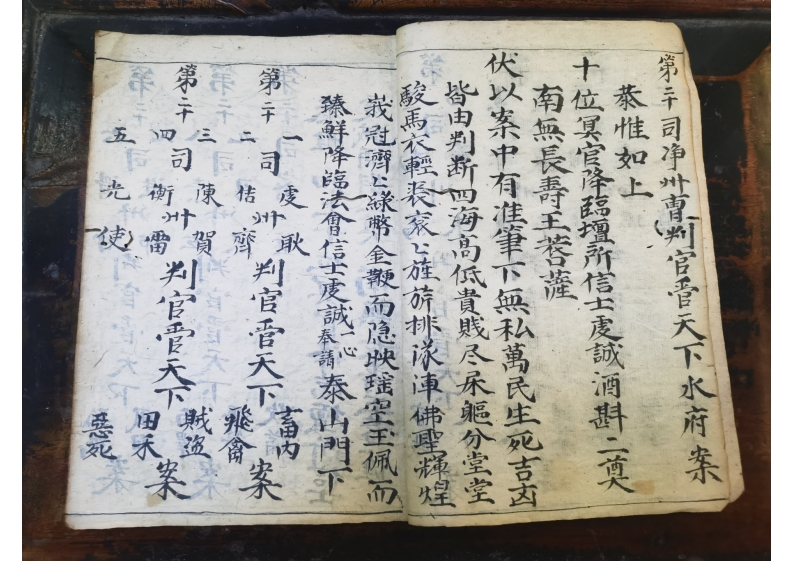 第二十司净州曹判官管天下水府案
恭惟如上
十位冥官降臨壇所信士虔誠酒斟二奠
南無長壽王菩薩
伏以案中有准筆下無私萬民生死吉凶
皆由判断四海高低貴賎尽
軀分堂堂
駿馬衣輕裘衮〻旌旂排隊
佛聖輝煌
峩冠濟〻綠幣金鞭而隐映瑶空玉佩而
臻鮮降臨法會信士虔誠一心奉請泰山門下
第二十
一
二
司
虔
桔
州
耿
齊
判官管天下
畜内
飛禽
案
第二十
三
四
五
司
陳
衡
光
州
賀
雷
使
判官管天下
賊盗
田禾
惡死
案